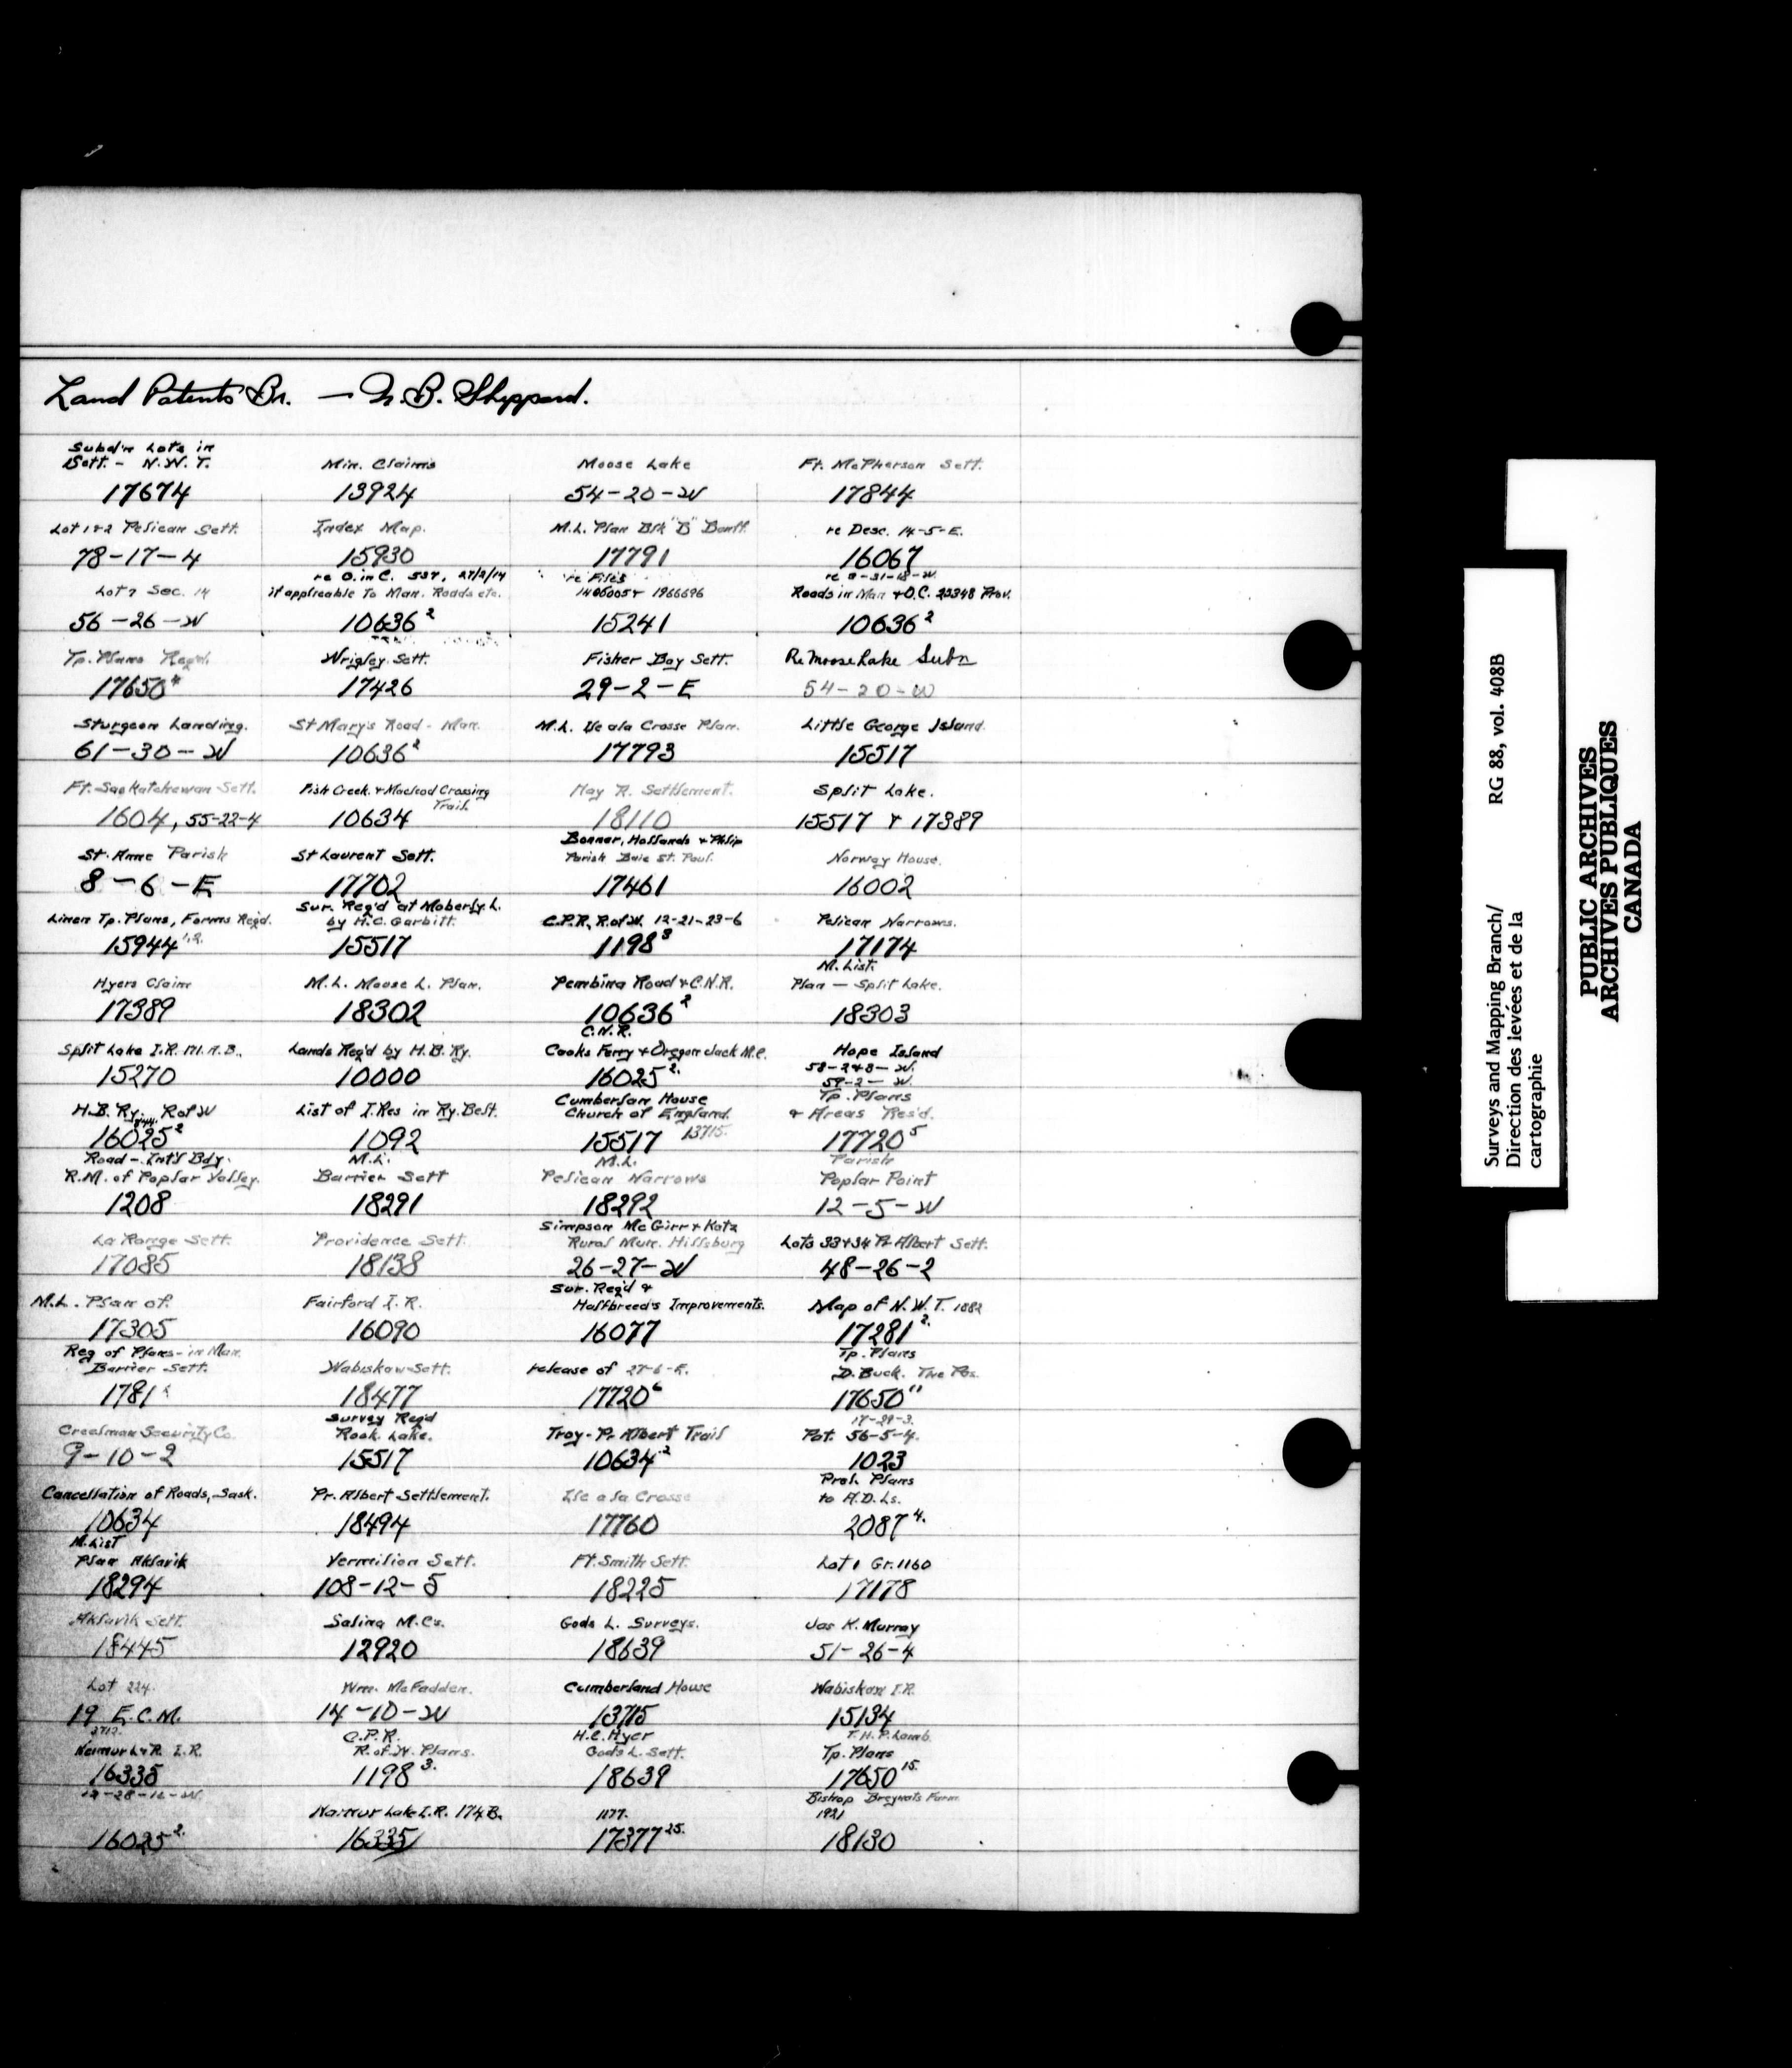 Land Patents Br. — N. B. Sheppard.
Subd'n Lots in
Sett. - N.W.T. Min. Claims Moose Lake Ft. McPherson Sett.
17674 13924 54-20-W 17844
Lot 1 & 2 Pelican Sett. Index Map. M.L. Plan Blk "B" Banff. re Desc. 14-5-E.
78-17-4 15930 17791 16067
re O. in C. 537, 27/2/14 re Files re 3-31-18-W.
Lot 7 Sec. 14 if applicable To Man. Roads etc. 1406005 & 1966696 Roads in Man & O.C. 23348 Prov.
56-26-W 10636² 15241 10636²
Tp. Plans Req'd. Wrigley Sett. Fisher Bay Sett. Re Moose Lake Subn
17650⁴ 17426 29-2-E 54-20-W
Sturgeon Landing. St Mary's Road - Man. M.L. Ile a la Crosse Plan. Little George Island.
61-30-W 10636² 17793 15517
Ft. Saskatchewan Sett. Fish Creek & Macleod Crossing Trail. Hay R. Settlement. Split Lake.
1604, 55-22-4 10634 18110 15517 & 17389
Bonner, Hollands & Philip
St. Anne Parish St Laurent Sett. Parish Baie St. Paul. Norway House.
8-6-E 17702 17461 16002
Sur. Req'd at Moberly L.
Linen Tp. Plans, Forms Req'd. by H.C. Garbitt. C.P.R. R of W. 12-21-23-6 Pelican Narrows.
15944 1,2. 15517 1198³ 17174
M. List.
Hyers Claim M.L. Moose L. Plan. Pembina Road & C.N.R. Plan — Split Lake.
17389 18302 10636² 18303
C.N.R.
Split Lake I.R. 171. A.B. Lands Req'd by H.B. Ry. Cooks Ferry & Oregon Jack M.C. Hope Island
15270 10000 16025² 58-2&3-W.
59-2-W.
Cumberlan House Tp. Plans
H.B. Ry. R of W List of I. Res in Ry. Belt. Church of England. & Areas Res'd.
16025² 1092 15517 13715 17720⁵
Road - Int'l Bdy. M.L. M.L. Parish
R.M. of Poplar Valley. Barrier Sett Pelican Narrows Poplar Point
1208 18291 18292 12-5-W
Simpson McGirr & Katz
La Ronge Sett. Providence Sett. Rural Mun. Hillsburg Lots 33 & 34 Pr Albert Sett.
17085 18138 26-27-W 48-26-2
Sur. Req'd &
M.L. Plan of. Fairford I.R. Halfbreed's Improvements. Map of N.W.T. 1882
17305 16090 16077 17281²
Reg of Plans - in Man. Tp. Plans
Barrier Sett. Wabiskaw Sett. release of 27-6-E. D. Buck. The Pas
1781 18477 17720⁶ 17650¹¹
Survey Req'd 17-29-3.
Creelman Security Co. Rook Lake. Troy - Pr Albert Trail Pat. 56-5-4.
9-10-2 15517 10634² 1023
Prel. Plans
Cancellation of Roads, Sask. Pr. Albert Settlement. Ile a la Crosse to A.D.Ls.
10634 18494 17760 2087⁴
M. List
Plan Aklavik Vermilion Sett. Ft. Smith Sett. Lot 1 Gr. 1160
18294 108-12-5 18225 17178
Aklavik Sett. Salina M.Cs. Gods L. Surveys. Jas K. Murray
18445 12920 18639 51-26-4
Lot 224. Wm. McFadden. Cumberland House Wabiskaw I.R.
19 E.C.M. 14-10-W 13715 15134
C.P.R. H.C. Hyer T.H.P. Lamb.
R. of W. Plans. Gods L. Sett. Tp. Plans
16335 1198³ 18639 17650¹⁵
12-28-12-W. Bishop Farm
Namur Lake I.R. 174 B. 1177. 1921
16025² 16335 17377²⁵ 18130
Surveys and Mapping Branch/ RG 88, vol. 408B
Direction des levées et de la
cartographie
PUBLIC ARCHIVES
ARCHIVES PUBLIQUES
CANADA